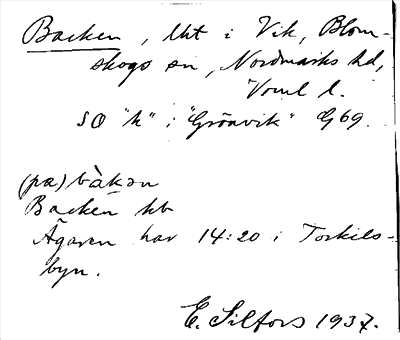 Backen, lht i Vik, Blom-
skogs sn, Nordmarks hd,
Vrml l.
SO "k" i "Grönvik" G69.
(pa) bàkən
Backen hb
Ägaren har 14:20 i Torkils-
byn.
E. Silfors 1937.